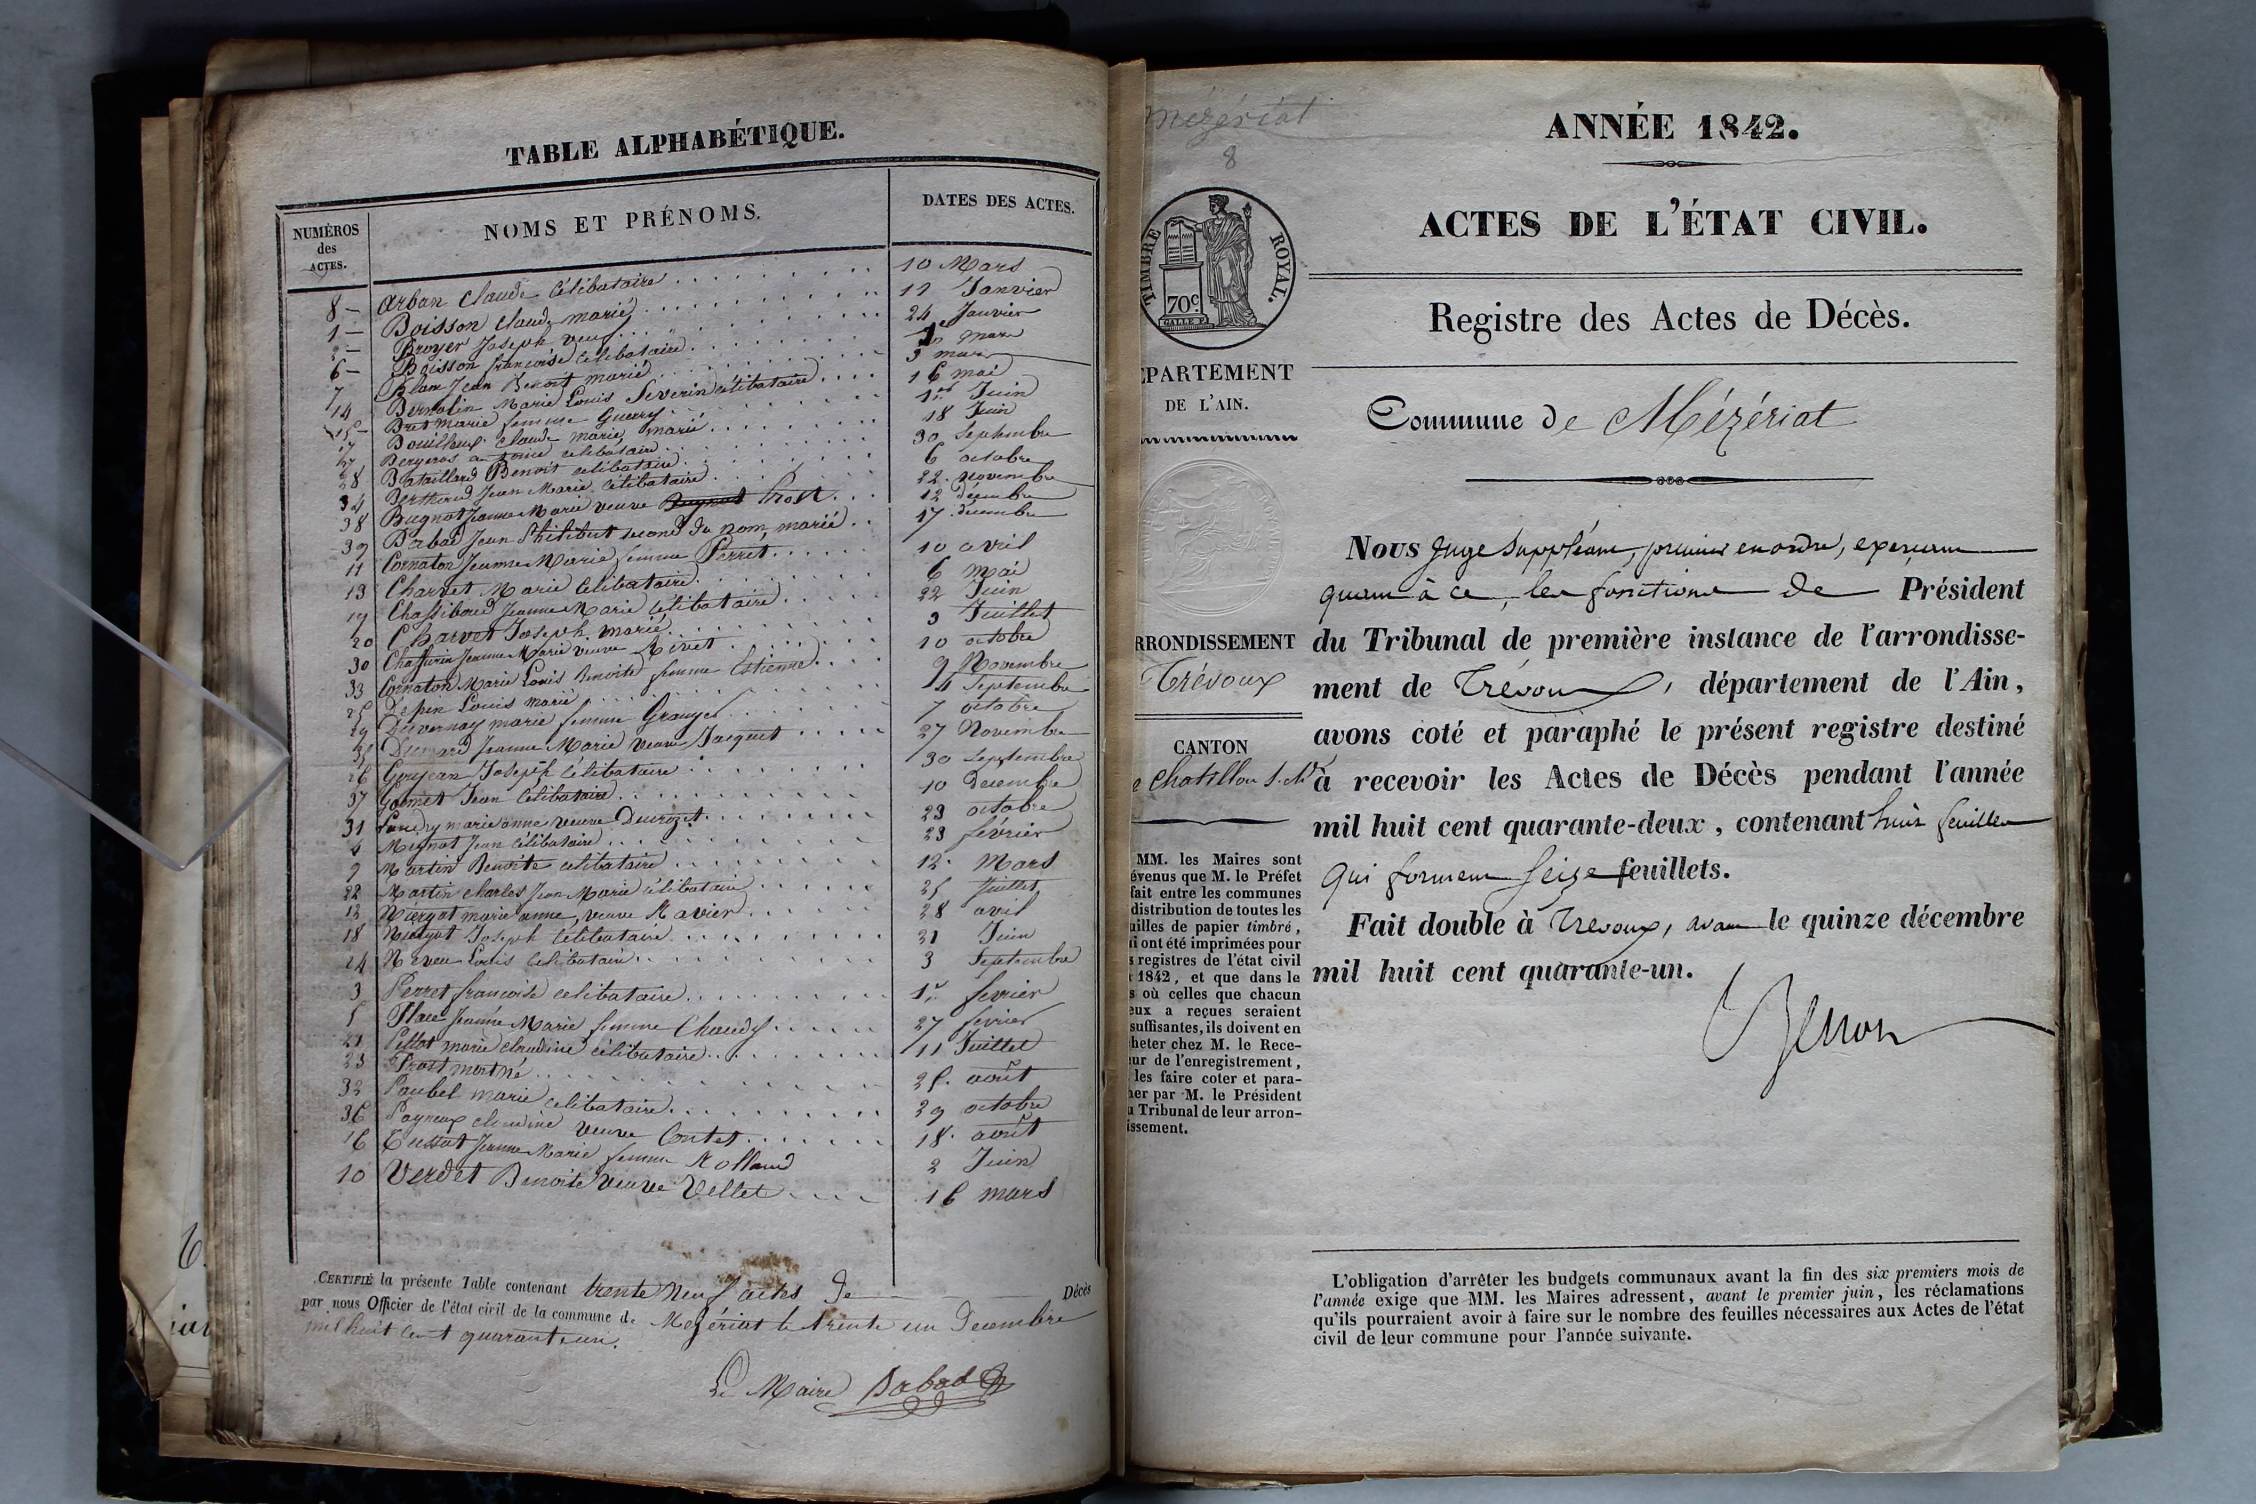 TABLE ALPHABÉTIQUE.
NUMÉROS des ACTES.
NOMS ET PRÉNOMS.
DATES DES ACTES.
8 Arban Claude Célibataire 10 Mars
1 Boisson Claude marié 11 Janvier
Broyer Joseph veuf 24 Janvier
6 Boisson françoise célibataire mars
7 Blanc Jean Benoit marié 3 mars
14 Bernolin Marie Louis Severin célibataire 16 mai
15 Bret marie femme Guerry 1er Juin
17 Bouilloux Claude marie, marié 18 Juin
27 célibataire 30 Septembre
28 Bataillard Benoit célibataire 6 octobre
34 Berthoud Jean Marie célibataire 22 Novembre
38 Bugnot Jeanne Marie veuve Prost 12 décembre
39 Babad Jean Philibert second du nom, marié 17 décembre
11 Cornaton Jeanne Marie femme Perret 10 avril
13 Charvet Marie Célibataire 6 Mai
19 Chassiboud Jeanne Marie Célibataire 22 Juin
20 Charvet Joseph marié 3 Juillet
30 Jeanne Marie veuve Rivet 10 octobre
33 Cornaton Marie Louis Benoite femme Estienne 9 Novembre
25 Depin Louis marié 4 Septembre
29 Duvernay marie femme Granger 7 octobre
35 Dumard Jeanne Marie veuve Jacquet 27 Novembre
26 Goyjean Joseph Célibataire 30 Septembre
37 Gomet Jean Célibataire 10 Decembre
31 Landry marie anne veuve Ducrozet 23 octobre
4 Mignot Jean Célibataire 23 février
9 Martin Benoite célibataire 12 Mars
22 Martin Charles Jean Marie célibataire 25 Juillet
12 marie anne, veuve Ravier 28 avril
18 Joseph Célibataire 21 Juin
24 Neveu Louis Célibataire 3 Septembre
3 Perret françoise célibataire 1er fevrier
5 Place Jeanne Marie femme Chaudy 27 fevrier
21 Pellot marie claudine célibataire 11 Juillet
23 Prost mort né 25 août
32 Paubel marie célibataire 29 octobre
36 Payneux claudine veuve Contet 18 août
16 Tussot Jeanne Marie femme Rolland 2 Juin
10 Verdet Benoite veuve Vellet 16 mars
CERTIFIÉ la présente Table contenant trente Neuf actes de Décès
par nous Officier de l'état civil de la commune de Mézériat le trente un Decembre
mil huit cent quarante un.
Le Maire Babad
Mézériat
8
TIMBRE ROYAL.
70c
DÉPARTEMENT
DE L'AIN.
ARRONDISSEMENT
Trévoux
CANTON
de Chatillon s. Ch.
MM. les Maires sont
évenus que M. le Préfet
fait entre les communes
distribution de toutes les
uilles de papier timbré,
ui ont été imprimées pour
s registres de l'état civil
1842, et que dans le
s où celles que chacun
eux a reçues seraient
suffisantes, ils doivent en
heter chez M. le Rece-
eur de l'enregistrement,
les faire coter et para-
her par M. le Président
u Tribunal de leur arron-
issement.
ANNÉE 1842.
ACTES DE L'ÉTAT CIVIL.
Registre des Actes de Décès.
Commune de Mézériat
NOUS Juge Suppléant, premier en ordre, exerçant
quant à ce, les fonctions de Président
du Tribunal de première instance de l'arrondisse-
ment de Trévoux, département de l'Ain,
avons coté et paraphé le présent registre destiné
à recevoir les Actes de Décès pendant l'année
mil huit cent quarante-deux, contenant huit feuilles
qui forment Seize feuillets.
Fait double à Trévoux, avant le quinze décembre
mil huit cent quarante-un.
L'obligation d'arrêter les budgets communaux avant la fin des six premiers mois de
l'année exige que MM. les Maires adressent, avant le premier juin, les réclamations
qu'ils pourraient avoir à faire sur le nombre des feuilles nécessaires aux Actes de l'état
civil de leur commune pour l'année suivante.